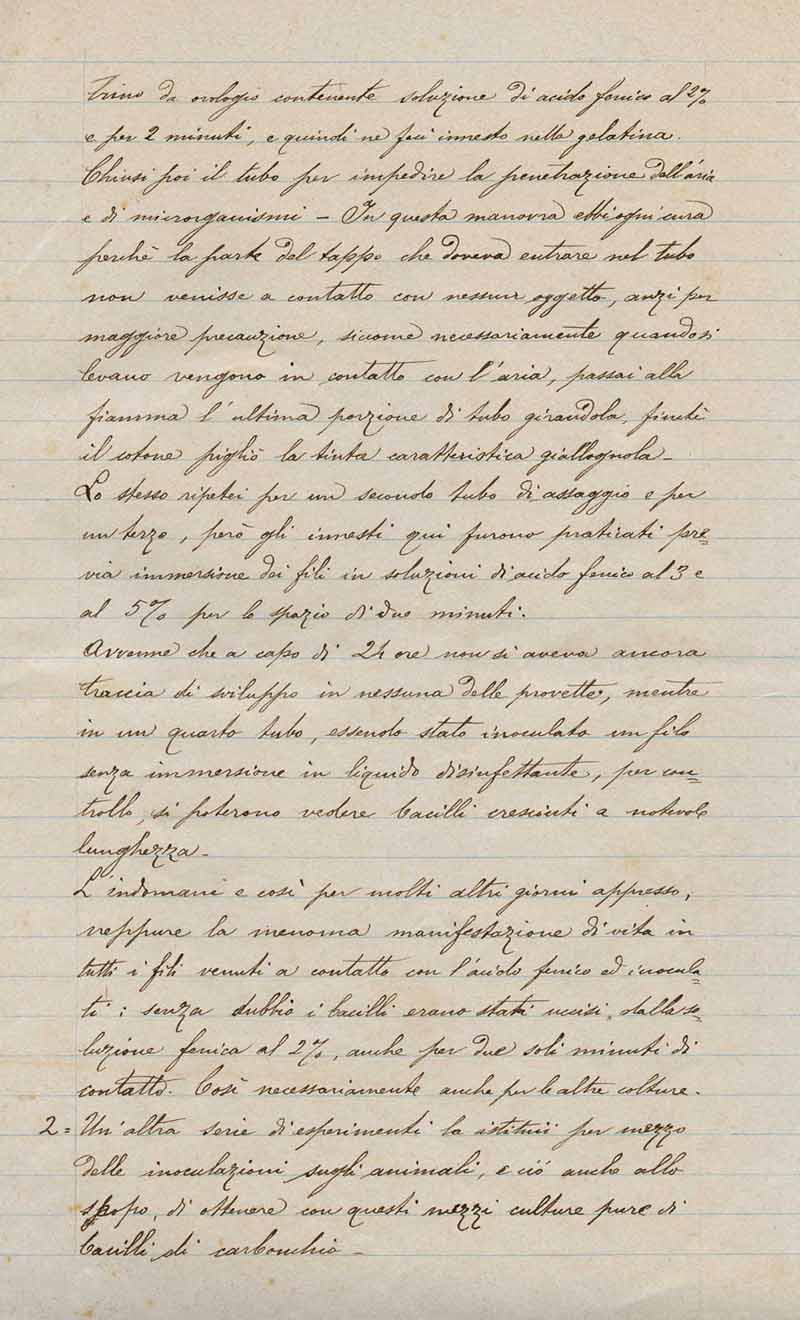 trino da orologio contenente soluzione di acido fenico al 2%
e per 2 minuti, e quindi ne feci innesto nella gelatina.
Chiusi poi il tubo per impedire la penetrazione dell'aria
e di microrganismi – In questa manovra ebbi ogni cura
perchè la parte del tappo che doveva entrare nel tubo
non venisse a contatto con nessun oggetto, anzi per
maggiore precauzione, siccome necessariamente quando si
levano vengono in contatto con l'aria, passai alla
fiamma l'ultima porzione di tubo girandola, finchè
il cotone pigliò la tinta caratteristica giallognola –
Lo stesso ripetei per un secondo tubo di assaggio e per
un terzo, però gli innesti qui furono praticati pre=
via immersione dei fili in soluzioni di acido fenico al 3 e
al 5% per lo spazio di due minuti.
Avvenne che a capo di 24 ore non si aveva ancora
traccia di sviluppo in nessuna delle provette, mentre
in un quarto tubo, essendo stato inoculato un filo
senza immersione in liquido disinfettante, per con=
trollo, si poterono vedere bacilli cresciuti a notevole
lunghezza –
L'indomani e così per molti altri giorni appresso,
neppure la menoma manifestazione di vita in
tutti i fili venuti a contatto con l'acido fenico ed inocula=
ti; senza dubbio i bacilli erano stati uccisi, dalla so=
luzione fenica al 2%, anche per due soli minuti di
contatto. Così necessariamente anche per le altre colture.
2 = Un'altra serie di esperimenti la istituii per mezzo
delle inoculazioni sugli animali, e ciò anche allo
scopo, di ottenere con questi mezzi culture pure di
bacilli di carbonchio –